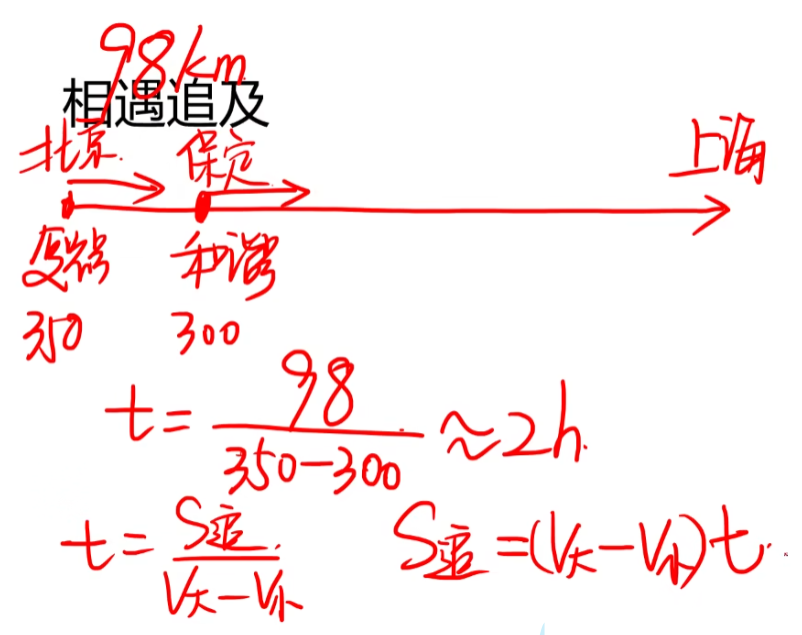 98km
相遇追及
北京 保定 上海
复兴号 和谐
350 300
t = 98 / (350-300) ≈ 2h.
t = S追 / (V大-V小) S追 = (V大-V小)t.